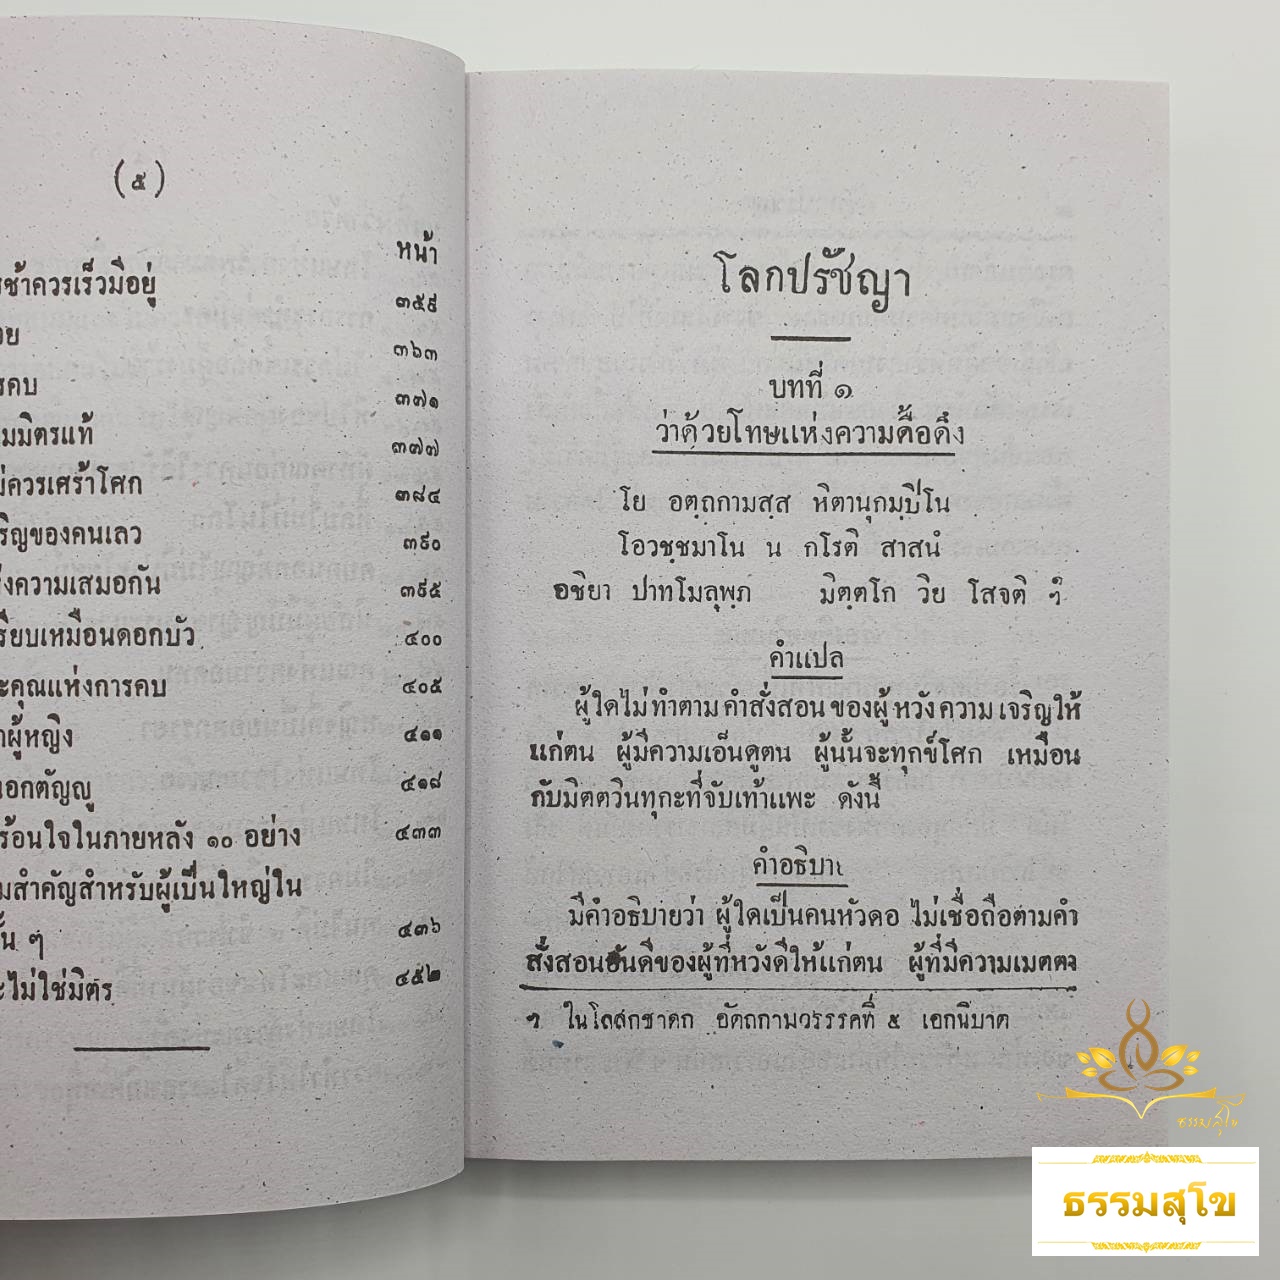 (๕)
หน้า
ช้าควรเร็วมีอยู่ ๓๕๙
๓๖๓
คบ ๓๗๑
มมิตรแท้ ๓๗๗
ควรเศร้าโศก ๓๘๔
ริญของคนเลว ๓๙๐
ความเสมอกัน ๓๙๕
รียบเหมือนดอกบัว ๔๐๐
คุณแห่งการคบ ๔๐๕
ผู้หญิง ๔๑๑
อกตัญญู ๔๑๘
ร้อนใจในภายหลัง ๑๐ อย่าง ๔๓๓
มสำคัญสำหรับผู้เป็นใหญ่ใน
ั้น ๆ ๔๓๖
ะไม่ใช่มิตร ๔๕๒
โลกปรัชญา
บทที่ ๑
ว่าด้วยโทษแห่งความดื้อดึง
โย อตฺถกามสฺส หิตานุกมฺปิโน
โอวชฺชมาโน น กโรติ สาสนํ
อชิยา ปาทโมลุพฺภ มิตฺตโก วิย โสจติ ๆ
คำแปล
ผู้ใดไม่ทำตามคำสั่งสอนของผู้หวังความเจริญให้
แก่ตน ผู้มีความเอ็นดูตน ผู้นั้นจะทุกข์โศก เหมือน
กับมิตตวินทุกะที่จับเท้าแพะ ดังนี้
คำอธิบาย
มีคำอธิบายว่า ผู้ใดเป็นคนหัวดอ ไม่เชื่อถือตามคำ
สั่งสอนอันดีของผู้ที่หวังดีให้แก่ตน ผู้ที่มีความเมตตา
๑ ในโลสกชาดก อัตถกามวรรรคที่ ๕ เอกนิบาต
ธรรมสุโข
ธรรมสุโข